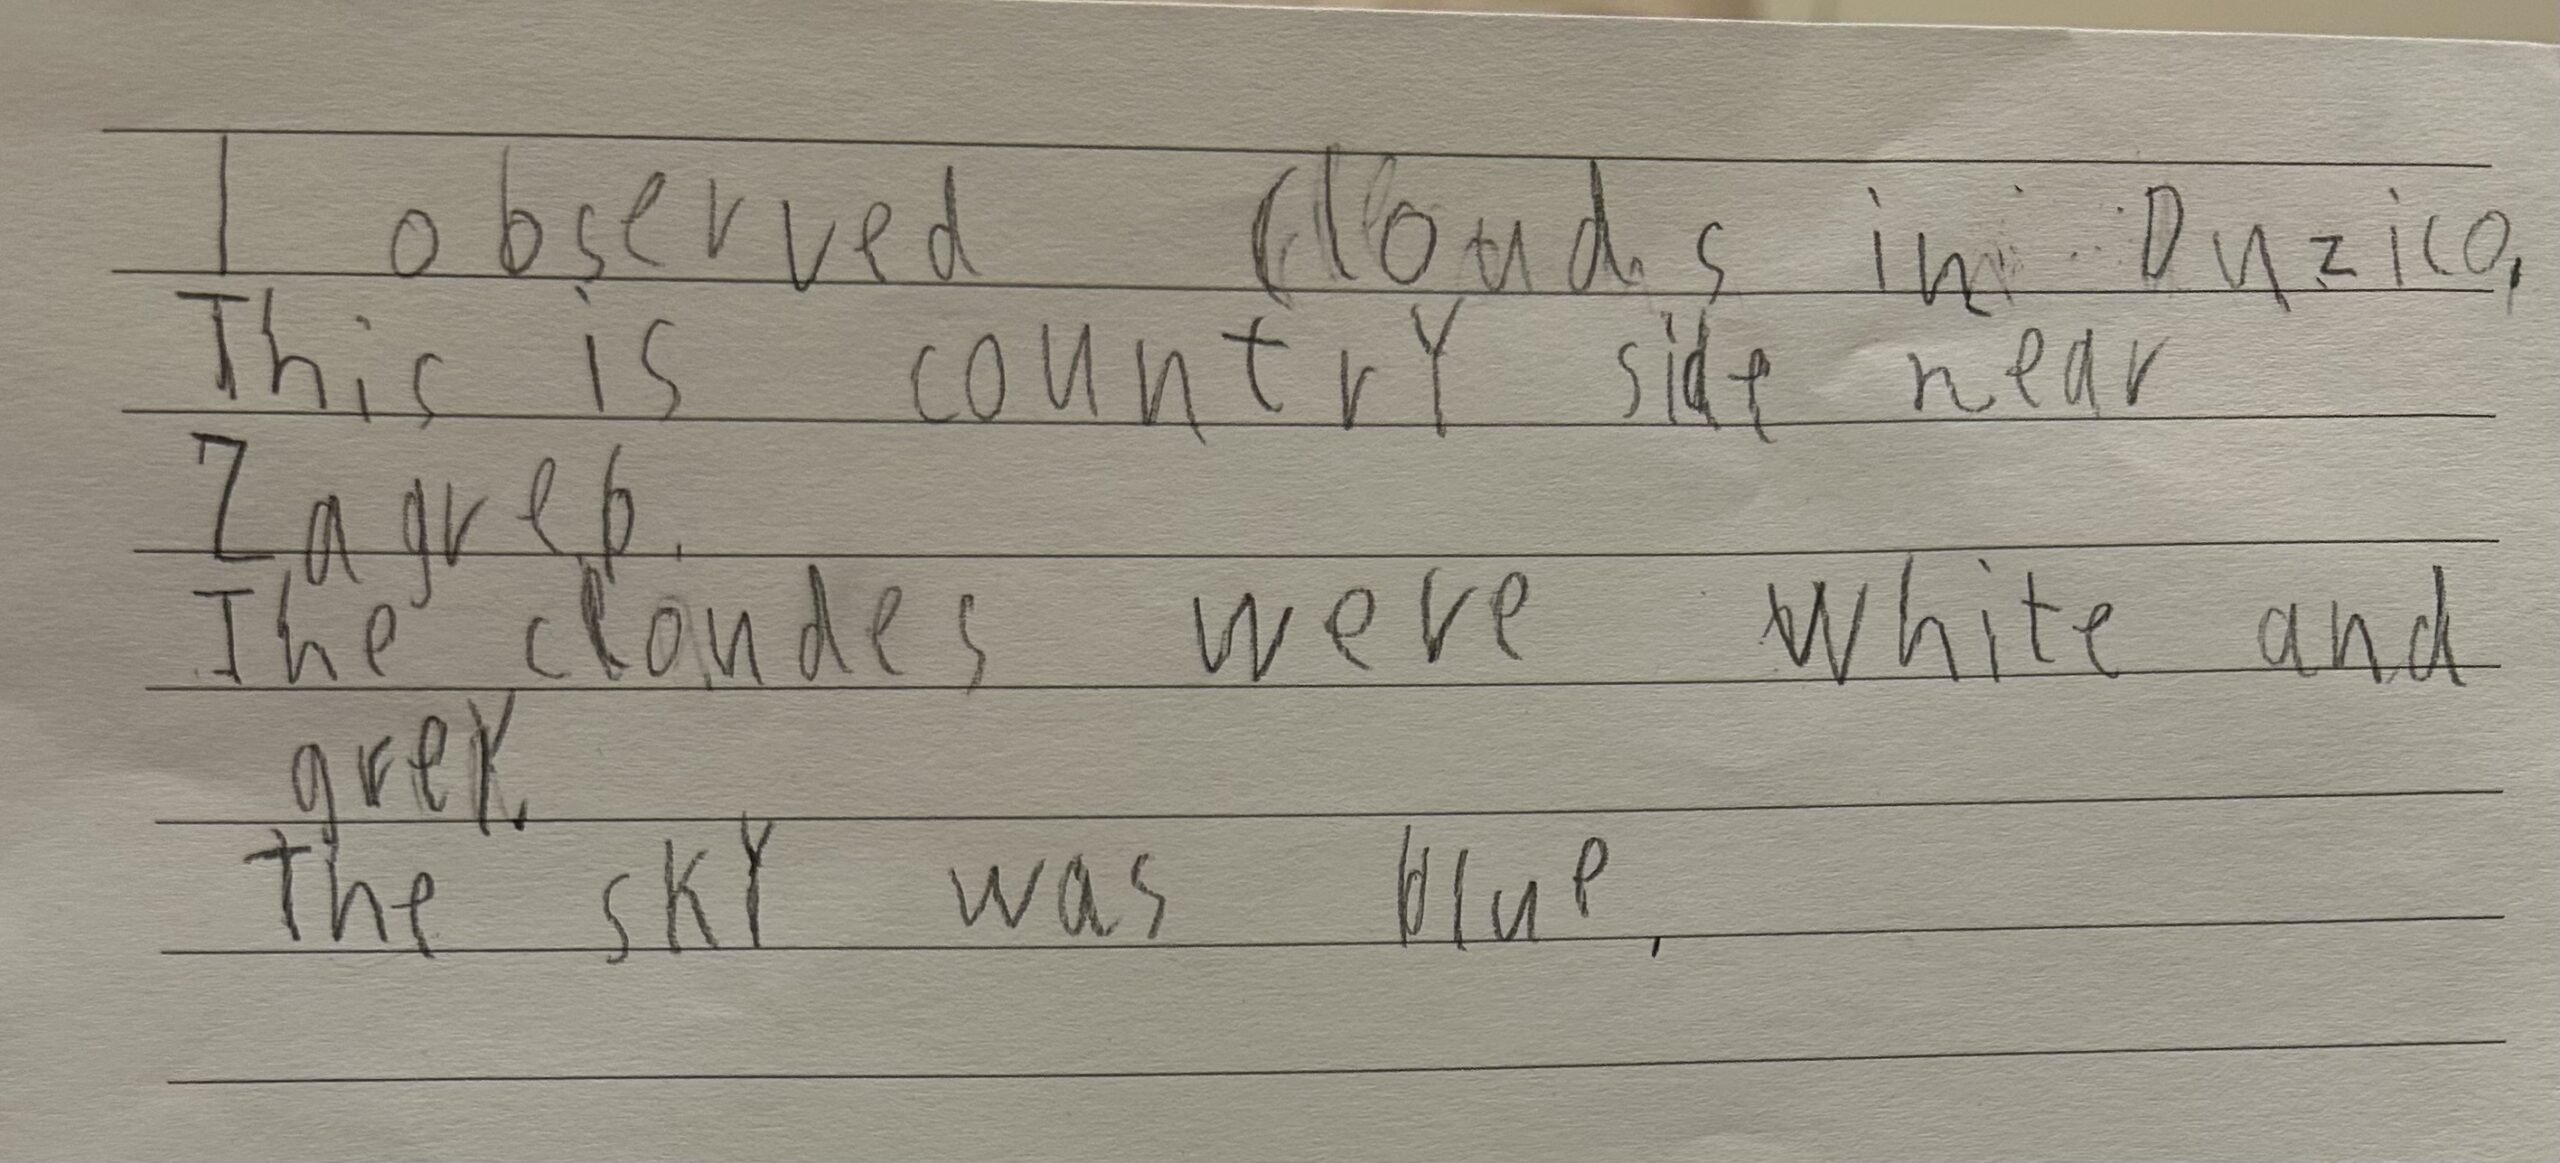 I observed clouds in Duzico.
This is country side near
Zagreb.
The cloudes were white and
grey.
The sky was blue.